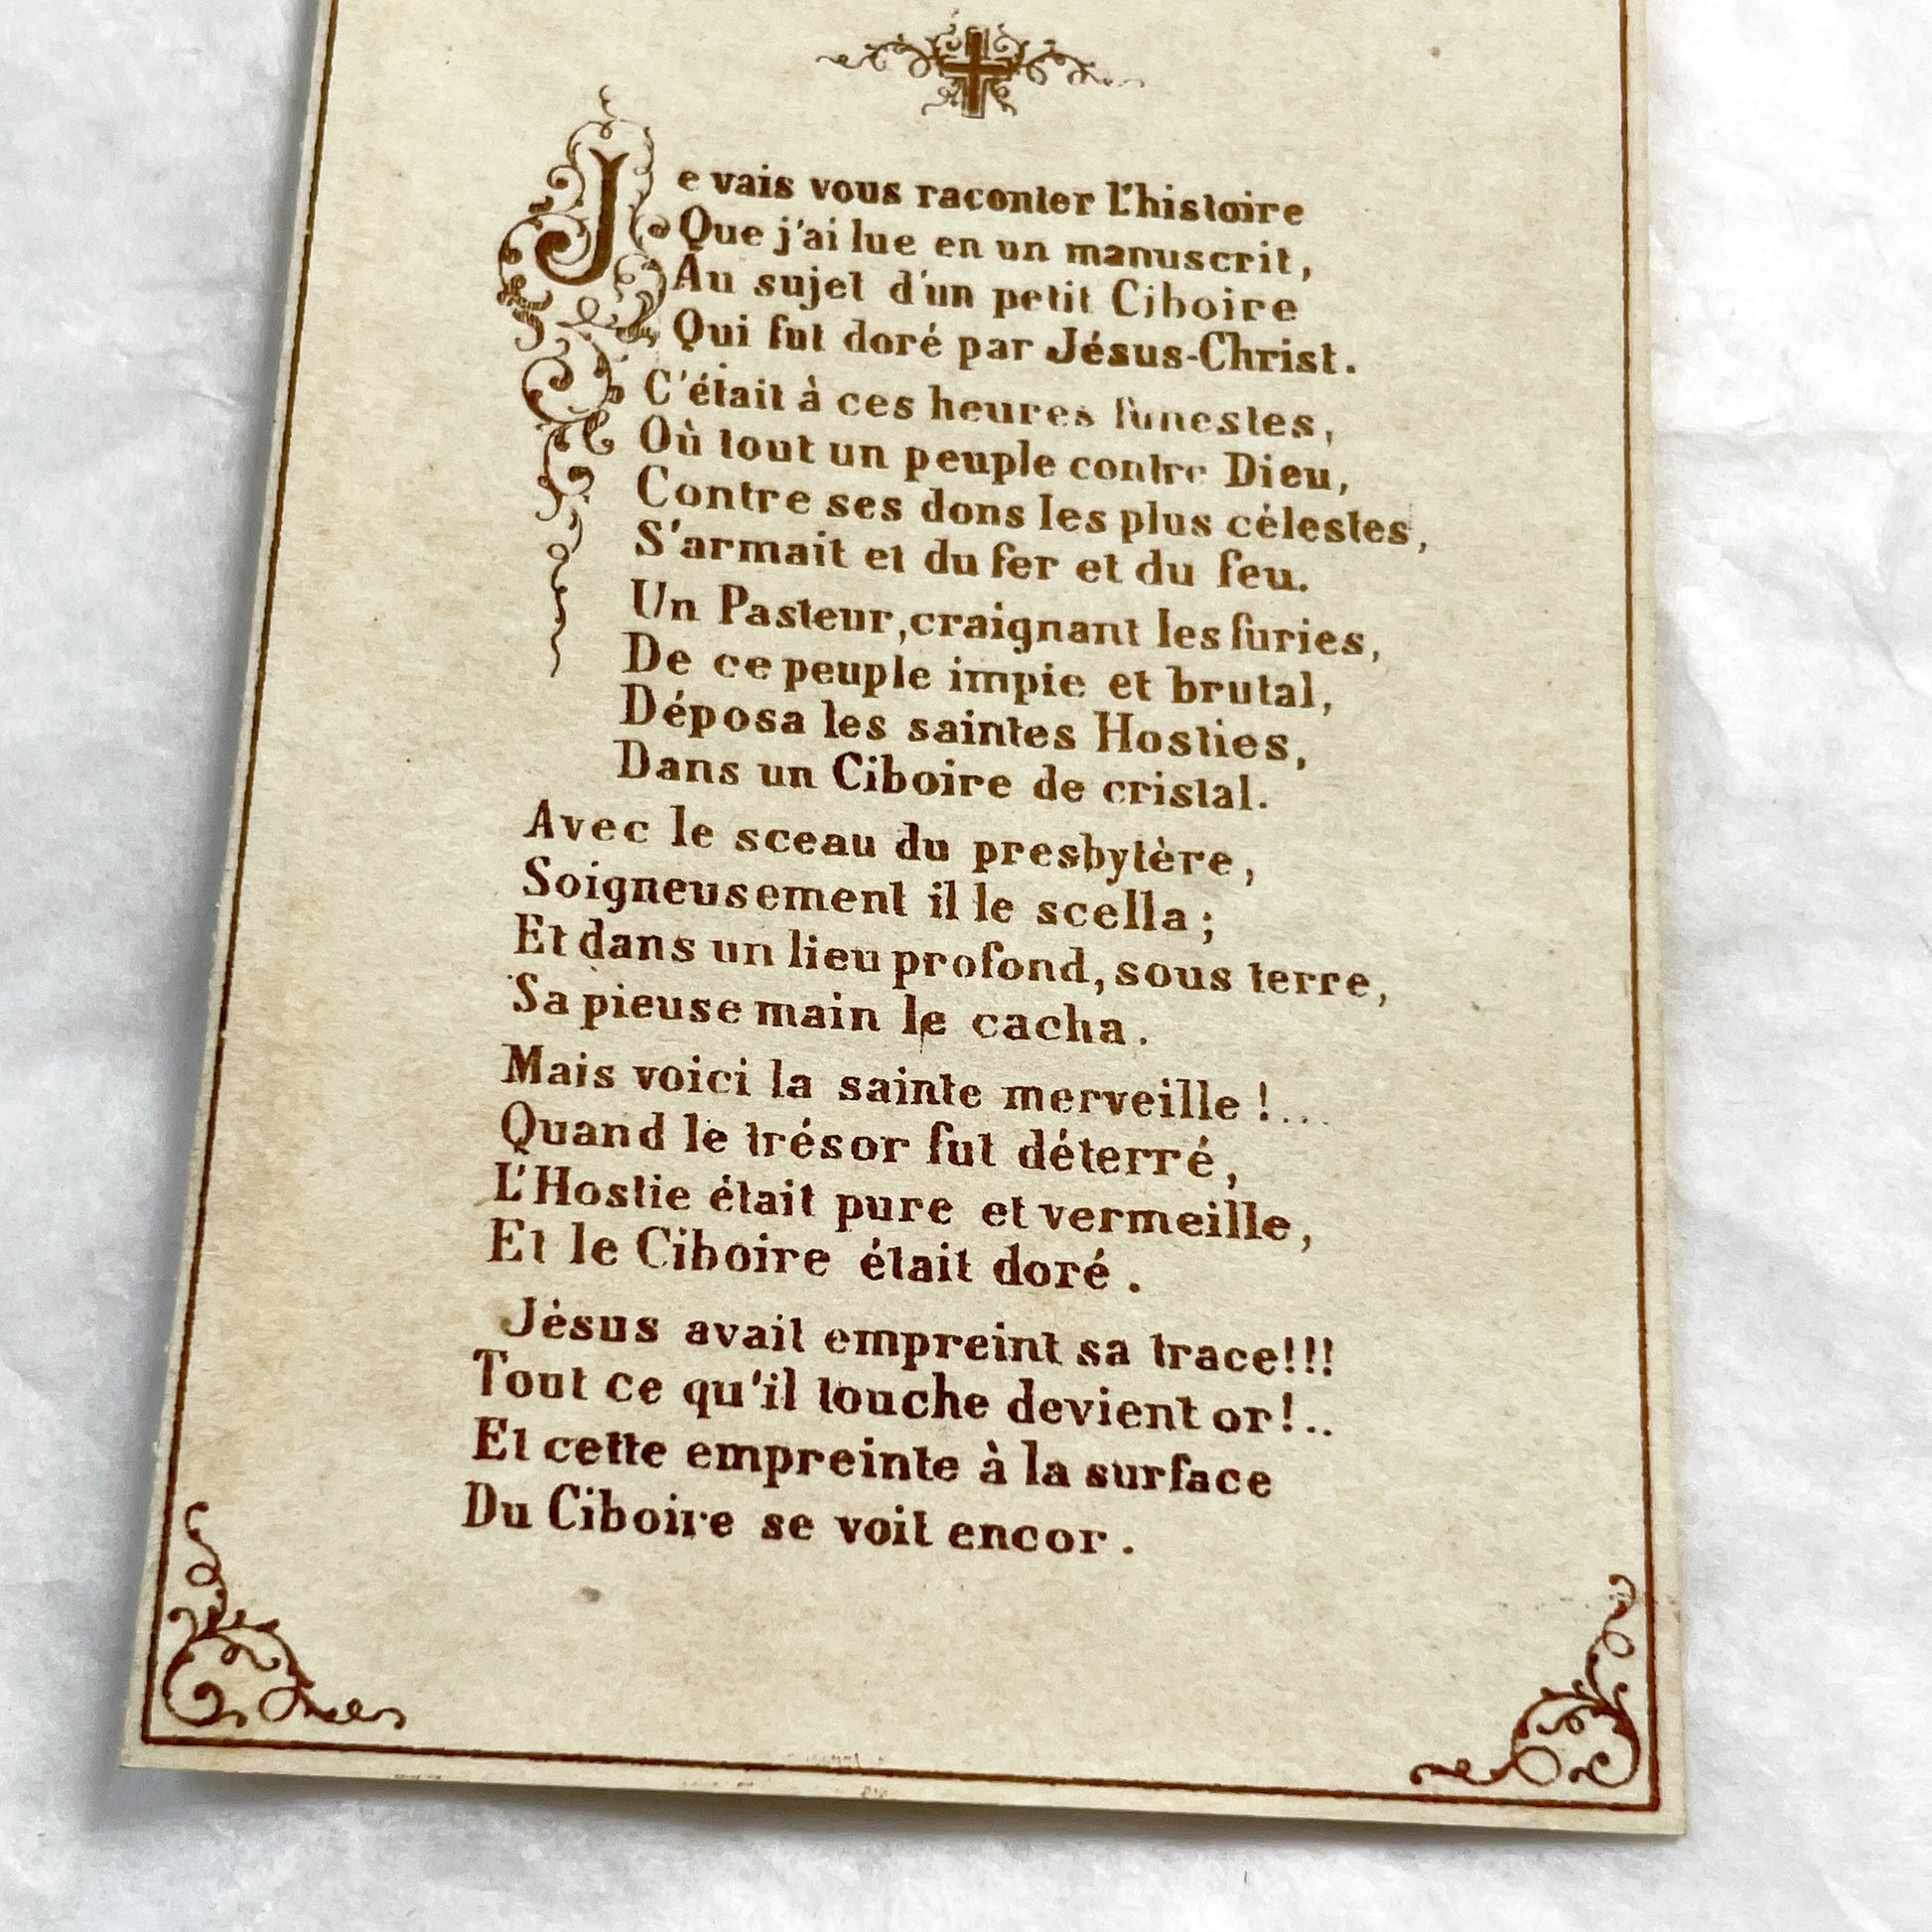 Je vais vous raconter l'histoire
Que j'ai lue en un manuscrit,
Au sujet d'un petit Ciboire
Qui fut doré par Jésus-Christ.
C'était à ces heures funestes,
Où tout un peuple contre Dieu,
Contre ses dons les plus célestes,
S'armait et du fer et du feu.
Un Pasteur, craignant les furies,
De ce peuple impie et brutal,
Déposa les saintes Hosties,
Dans un Ciboire de cristal.
Avec le sceau du presbytère,
Soigneusement il le scella;
Et dans un lieu profond, sous terre,
Sa pieuse main le cacha.
Mais voici la sainte merveille !...
Quand le trésor fut déterré,
L'Hostie était pure et vermeille,
Et le Ciboire était doré.
Jésus avait empreint sa trace!!!
Tout ce qu'il touche devient or!..
Et cette empreinte à la surface
Du Ciboire se voit encor.